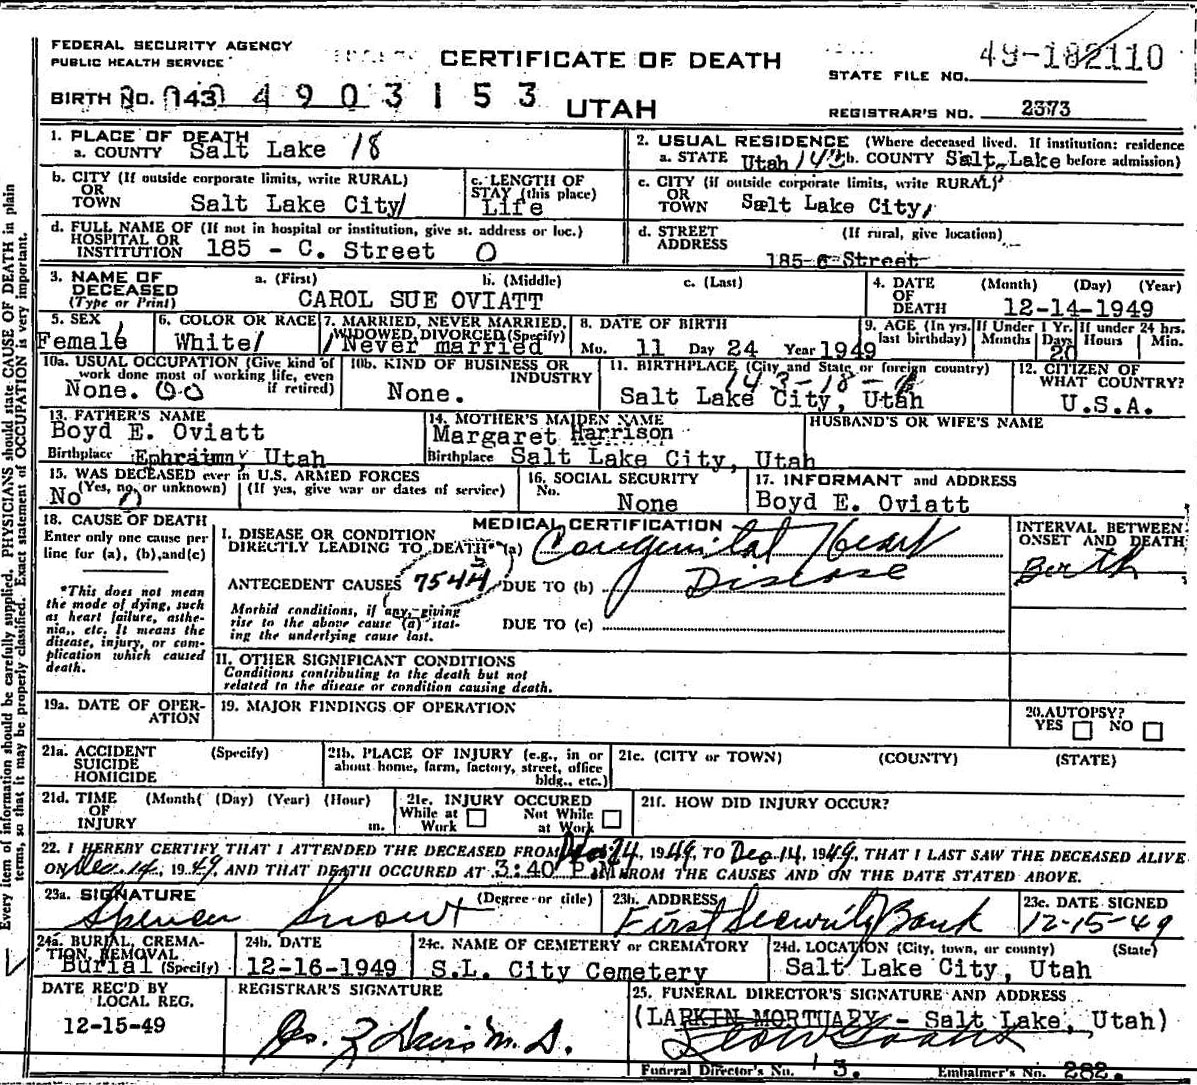 FEDERAL SECURITY AGENCY
PUBLIC HEALTH SERVICE
CERTIFICATE OF DEATH
UTAH
STATE FILE NO. 49-182110
BIRTH NO. 143 4903153
REGISTRAR'S NO. 2373
1. PLACE OF DEATH
a. COUNTY Salt Lake 18
2. USUAL RESIDENCE (Where deceased lived. If institution: residence before admission)
a. STATE Utah 143 b. COUNTY Salt Lake
b. CITY (If outside corporate limits, write RURAL) OR TOWN Salt Lake City
c. LENGTH OF STAY (this place) Life
c. CITY (if outside corporate limits, write RURAL) OR TOWN Salt Lake City
d. FULL NAME OF HOSPITAL OR INSTITUTION (If not in hospital or institution, give st. address or loc.) 185 - C. Street 0
d. STREET ADDRESS (If rural, give location) 185 C Street
3. NAME OF DECEASED (Type or Print)
a. (First) b. (Middle) c. (Last)
CAROL SUE OVIATT
4. DATE OF DEATH (Month) (Day) (Year)
12-14-1949
5. SEX Female
6. COLOR OR RACE White
7. MARRIED, NEVER MARRIED, WIDOWED, DIVORCED (Specify) Never married
8. DATE OF BIRTH Mo. 11 Day 24 Year 1949
9. AGE (In yrs. last birthday) If Under 1 Yr. Months Days 20 If under 24 hrs. Hours Min.
10a. USUAL OCCUPATION (Give kind of work done most of working life, even if retired) None.
10b. KIND OF BUSINESS OR INDUSTRY None.
11. BIRTHPLACE (City and State or foreign country) Salt Lake City, Utah
12. CITIZEN OF WHAT COUNTRY? U.S.A.
13. FATHER'S NAME Boyd E. Oviatt
Birthplace Ephraim, Utah
14. MOTHER'S MAIDEN NAME Margaret Harrison
Birthplace Salt Lake City, Utah
HUSBAND'S OR WIFE'S NAME
15. WAS DECEASED ever in U.S. ARMED FORCES
(Yes, no, or unknown) (If yes, give war or dates of service)
No
16. SOCIAL SECURITY No. None
17. INFORMANT and ADDRESS
Boyd E. Oviatt
18. CAUSE OF DEATH
Enter only one cause per line for (a), (b), and (c)
*This does not mean the mode of dying, such as heart failure, asthenia, etc. It means the disease, injury, or complication which caused death.
MEDICAL CERTIFICATION
I. DISEASE OR CONDITION DIRECTLY LEADING TO DEATH* (a) Congenital Heart
ANTECEDENT CAUSES 7544 DUE TO (b) Disease
Morbid conditions, if any, giving rise to the above cause (a) stating the underlying cause last.
DUE TO (c)
INTERVAL BETWEEN ONSET AND DEATH
Birth
II. OTHER SIGNIFICANT CONDITIONS
Conditions contributing to the death but not related to the disease or condition causing death.
19a. DATE OF OPERATION
19. MAJOR FINDINGS OF OPERATION
20. AUTOPSY? YES NO
21a. ACCIDENT SUICIDE HOMICIDE (Specify)
21b. PLACE OF INJURY (e.g., in or about home, farm, factory, street, office bldg., etc.)
21c. (CITY or TOWN) (COUNTY) (STATE)
21d. TIME OF INJURY (Month) (Day) (Year) (Hour) m.
21e. INJURY OCCURED While at Work Not While at Work
21f. HOW DID INJURY OCCUR?
22. I HEREBY CERTIFY THAT I ATTENDED THE DECEASED FROM Nov 24, 1949, TO Dec 14, 1949, THAT I LAST SAW THE DECEASED ALIVE
ON Dec. 14, 1949, AND THAT DEATH OCCURED AT 3:40 P.M. FROM THE CAUSES AND ON THE DATE STATED ABOVE.
23a. SIGNATURE (Degree or title) Spencer Snow
23b. ADDRESS First Security Bank
23c. DATE SIGNED 12-15-49
24a. BURIAL, CREMATION, REMOVAL (Specify) Burial
24b. DATE 12-16-1949
24c. NAME OF CEMETERY OR CREMATORY S.L. City Cemetery
24d. LOCATION (City, town, or county) (State) Salt Lake City, Utah
DATE REC'D BY LOCAL REG. 12-15-49
REGISTRAR'S SIGNATURE
M.D.
25. FUNERAL DIRECTOR'S SIGNATURE AND ADDRESS
(LARKIN MORTUARY - Salt Lake, Utah)
Funeral Director's No. 3. Embalmer's No. 282.
Every item of information should be carefully supplied. PHYSICIANS should state CAUSE OF DEATH in plain terms, so that it may be properly classified. Exact statement of OCCUPATION is very important.